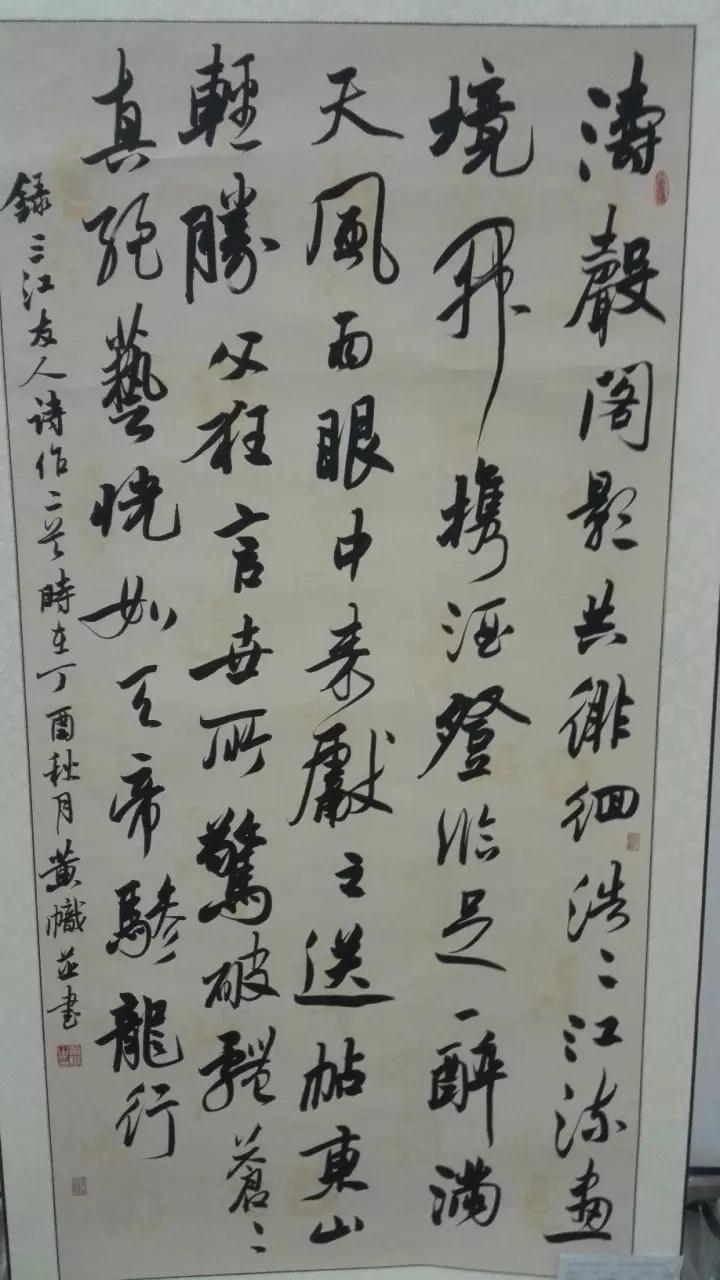 濤聲閣影共徘徊浩〻江流畫
境開携酒登臨足一醉滿
天風雨眼中来獻之送帖東山
輕勝父狂言世所驚破體蒼〻
真絕藝恍如天帝驂龍行
録三江友人诗作二首時在丁酉秋月黄幟並書